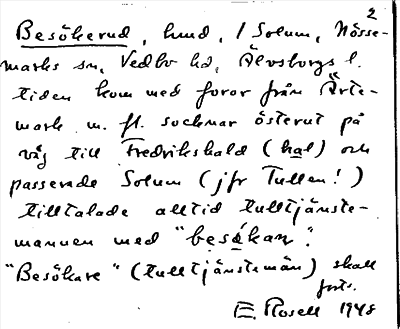 2
Besökerud, hmd, / Solum, Nösse-
marks sn, Vedbo hd, Älvsborgs l.
tiden kom med foror från Ärte-
mark m. fl. socknar österut på
väg till Fredrikshald (hal) och
passerade Solum (jfr Tullen!)
tilltalade alltid tulltjänste-
mannen med "besökan".
"Besökare" (tulltjänstemän) skall
forts.
E Rosell 1948